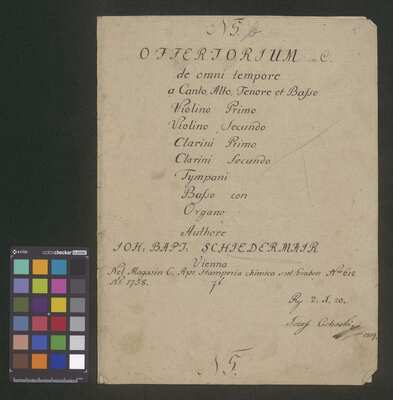 N 5.
OFFERTORIUM in C.
de omni tempore
a Canto, Alto, Tenore et Basso
Violino Primo
Violino Secundo
Clarini Primo
Clarini Secundo
Tympani
Basso con
Organo
Authore
IOH: BAPT: SCHIEDERMAIR
Vienna
Nel Magasin C. Apr. Stamperia chimica sul Graben Nro 612
N. 1738.
2. x. 20.
Jozef
N 5.
colorchecker